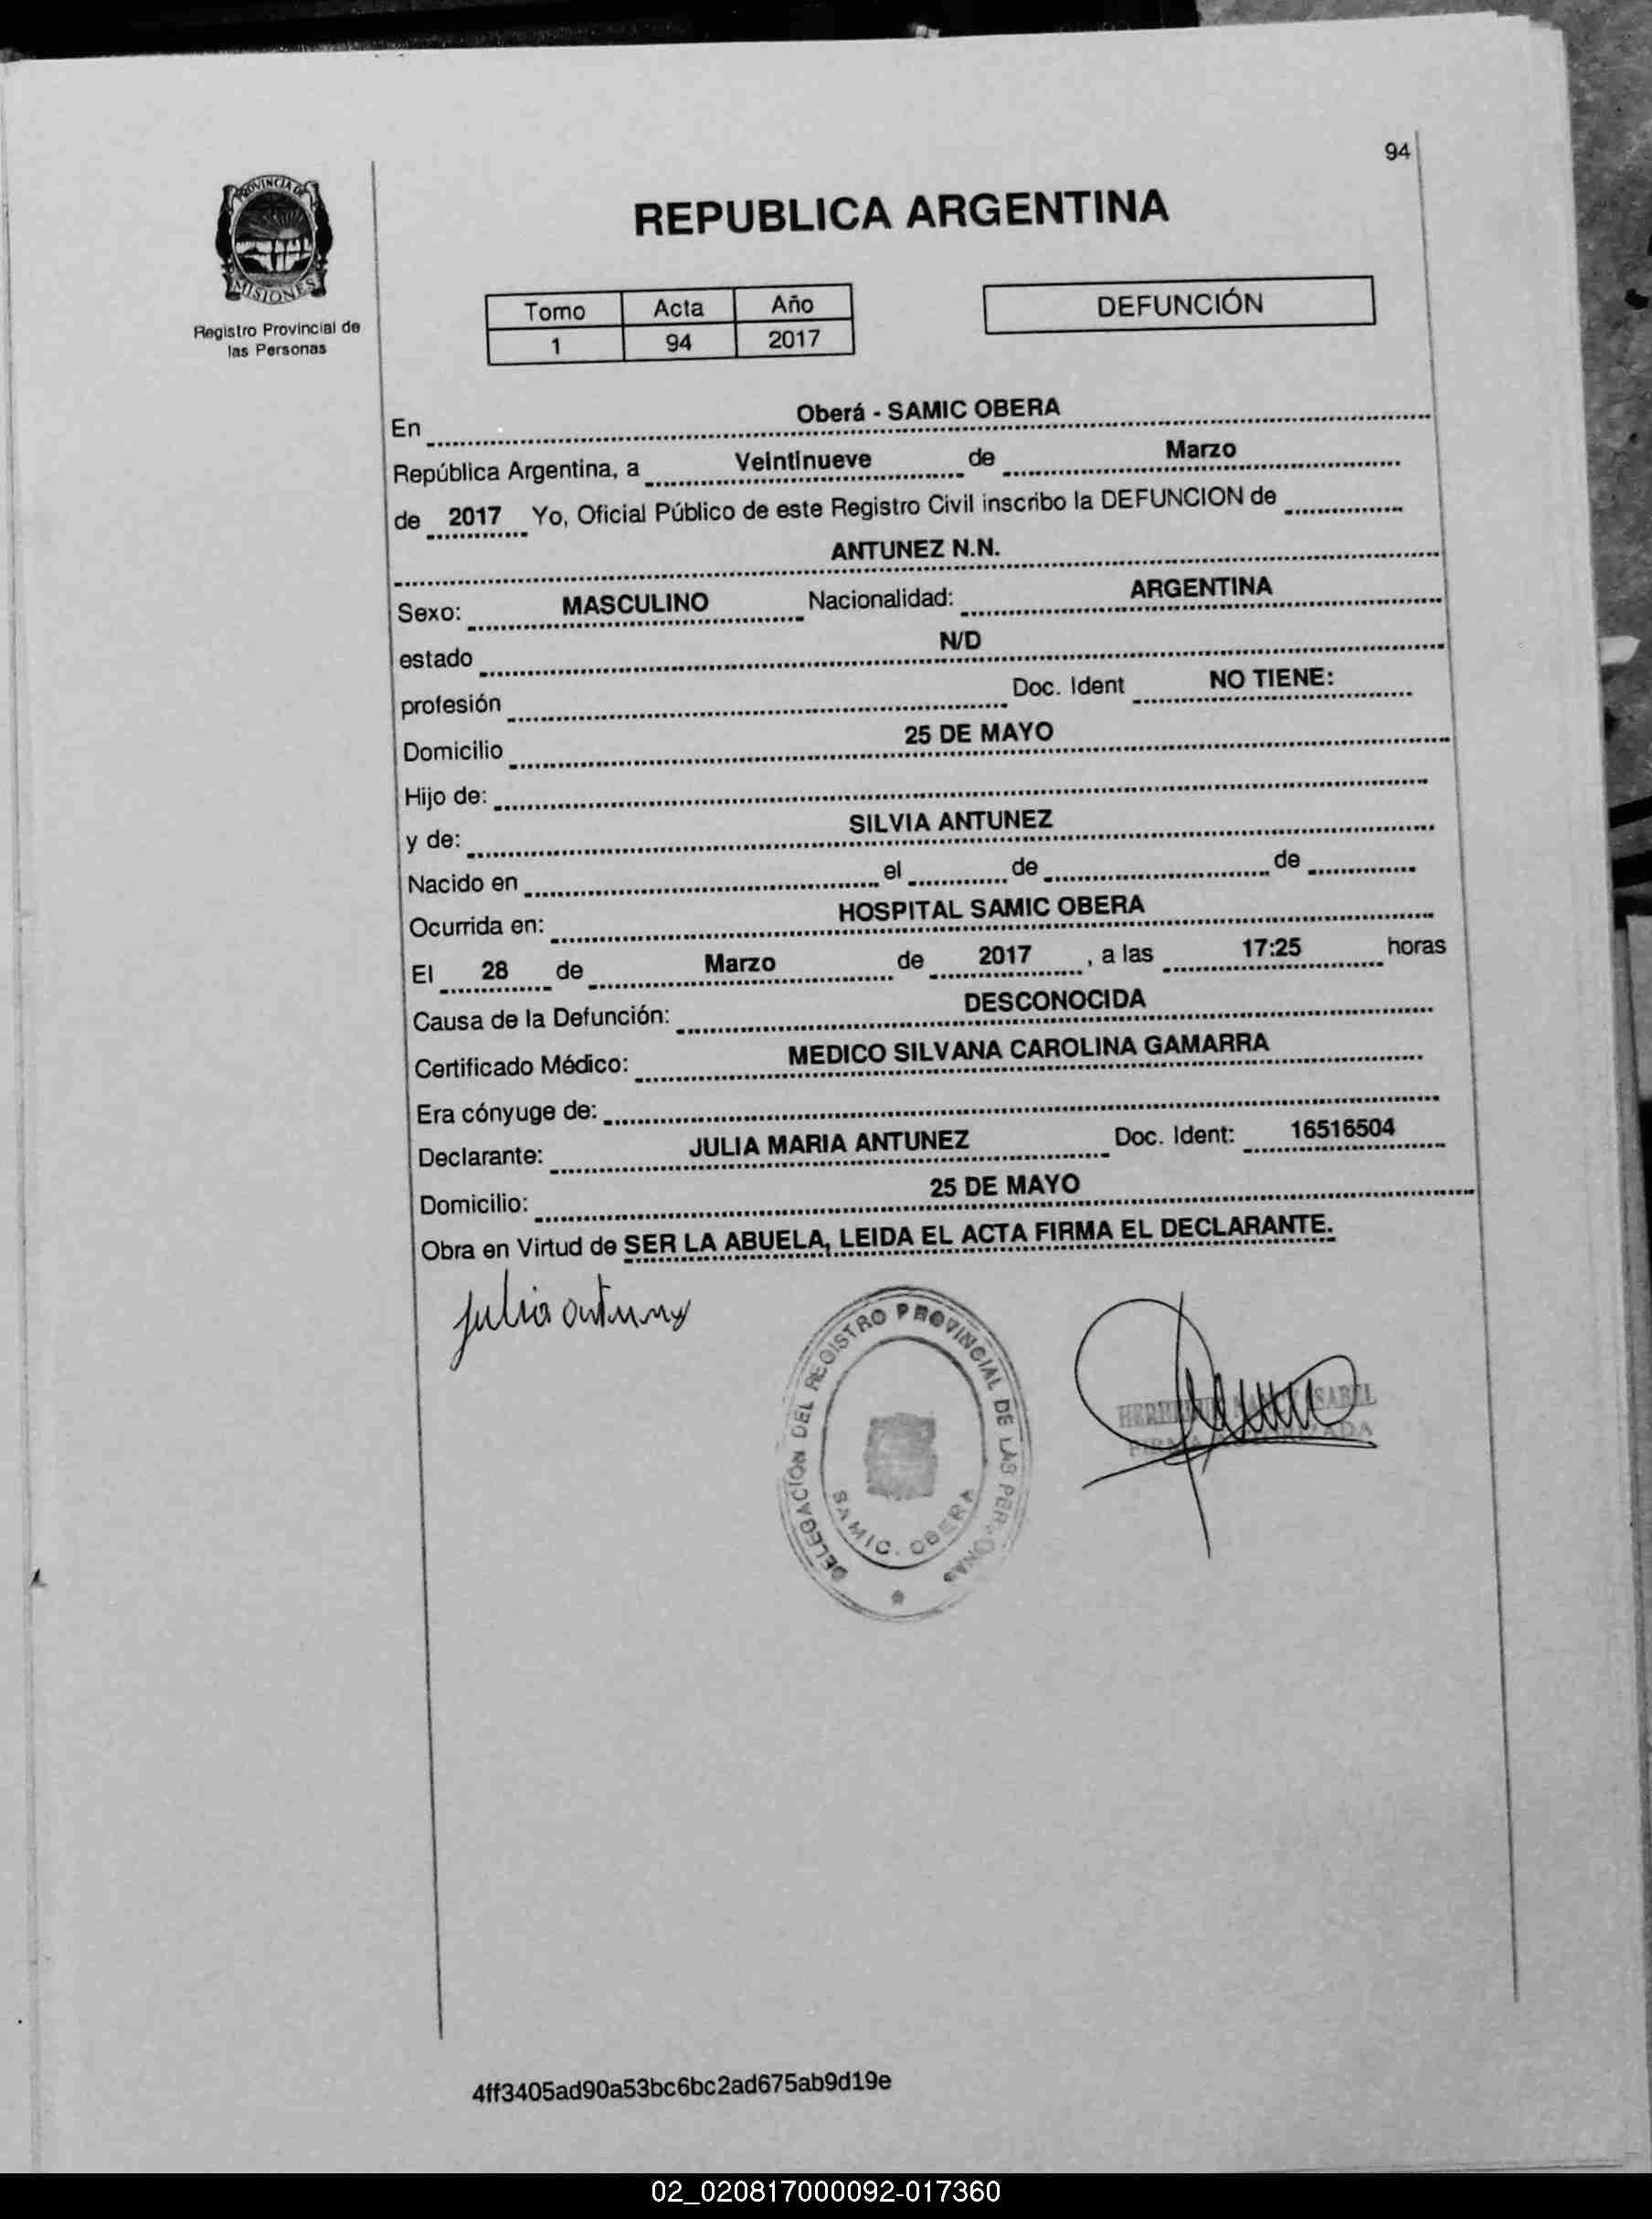 94
PROVINCIA DE
MISIONES
Registro Provincial de
las Personas
REPUBLICA ARGENTINA
Tomo Acta Año
1 94 2017
DEFUNCIÓN
En Oberá - SAMIC OBERA
República Argentina, a Veintinueve de Marzo
de 2017 Yo, Oficial Público de este Registro Civil inscribo la DEFUNCION de
ANTUNEZ N.N.
Sexo: MASCULINO Nacionalidad: ARGENTINA
estado N/D
profesión Doc. Ident NO TIENE:
Domicilio 25 DE MAYO
Hijo de:
y de: SILVIA ANTUNEZ
Nacido en el de de
Ocurrida en: HOSPITAL SAMIC OBERA
El 28 de Marzo de 2017 , a las 17:25 horas
Causa de la Defunción: DESCONOCIDA
Certificado Médico: MEDICO SILVANA CAROLINA GAMARRA
Era cónyuge de:
Declarante: JULIA MARIA ANTUNEZ Doc. Ident: 16516504
Domicilio: 25 DE MAYO
Obra en Virtud de SER LA ABUELA, LEIDA EL ACTA FIRMA EL DECLARANTE.
Julia
DELEGACION DEL REGISTRO PROVINCIAL DE LAS PERSONAS
SAMIC. OBERA
4ff3405ad90a53bc6bc2ad675ab9d19e
02_020817000092-017360